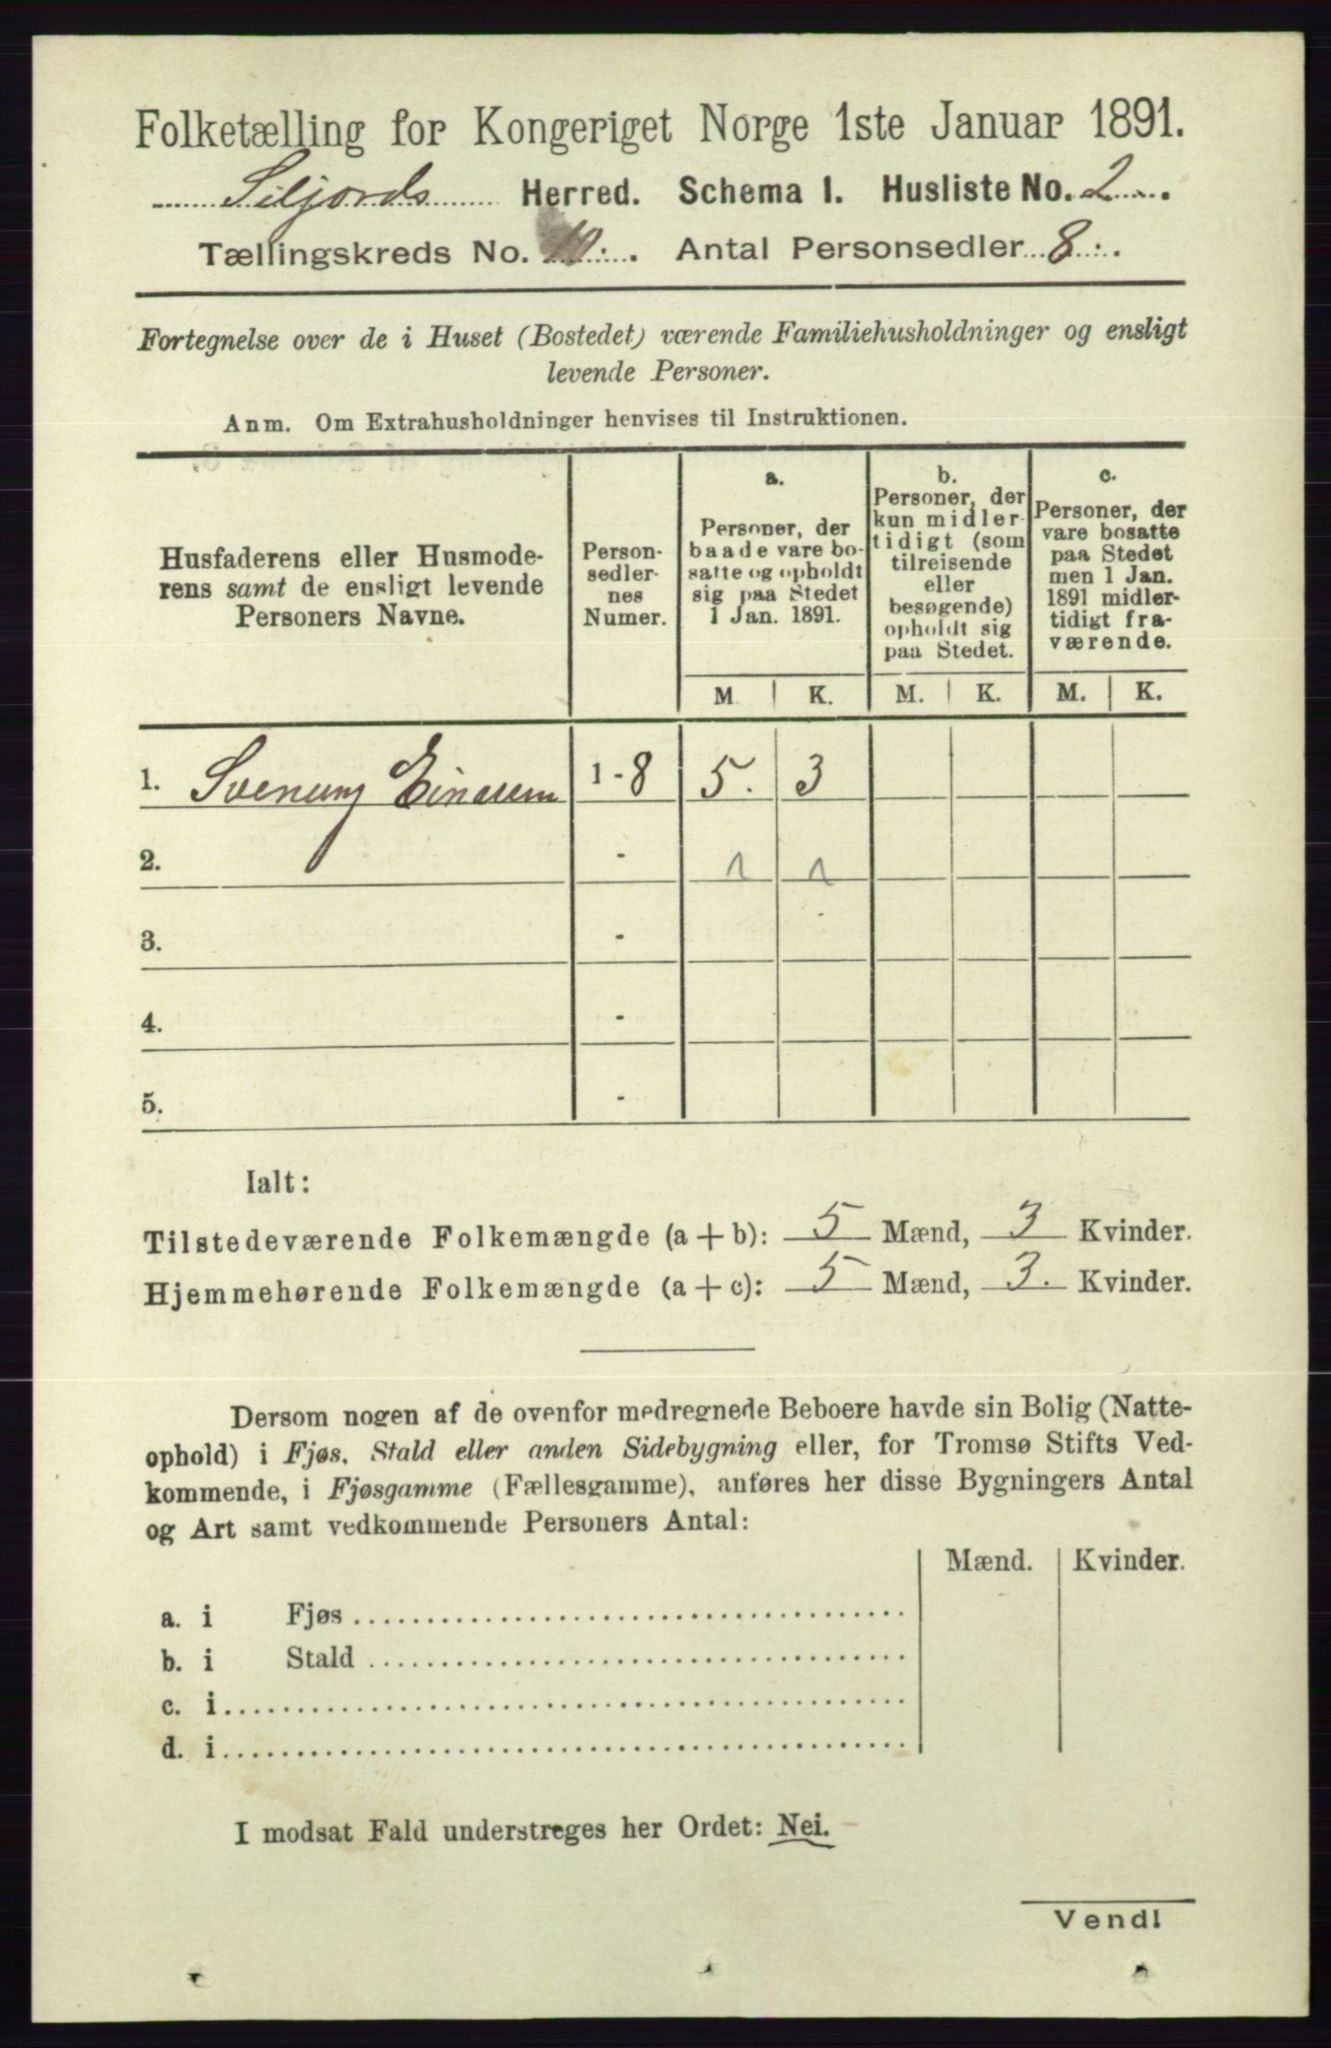 Folketælling for Kongeriget Norge 1ste Januar 1891.
Siljords Herred. Schema 1. Husliste No. 2
Tællingskreds No. 10. Antal Personsedler 8.
Fortegnelse over de i Huset (Bostedet) værende Familiehusholdninger og ensligt
levende Personer.
Anm. Om Extrahusholdninger henvises til Instruktionen.
Husfaderens eller Husmode-
rens samt de ensligt levende
Personers Navne.
Person-
sedler-
nes
Numer.
a.
Personer, der
baade vare bo-
satte og opholdt
sig paa Stedet
1 Jan. 1891.
b.
Personer, der
kun midler-
tidigt (som
tilreisende
eller
besøgende)
opholdt sig
paa Stedet.
c.
Personer, der
vare bosatte
paa Stedet
men 1 Jan.
1891 midler-
tidigt fra-
værende.
M K. M. K. M. K.
1. 1-8 5. 3
2. - 1 1
3. -
4. -
5. -
Ialt:
Tilstedeværende Folkemængde (a + b): 5 Mænd, 3 Kvinder.
Hjemmehørende Folkemængde (a + c): 5 Mænd, 3. Kvinder.
Dersom nogen af de ovenfor medregnede Beboere havde sin Bolig (Natte-
ophold) i Fjøs, Stald eller anden Sidebygning eller, for Tromsø Stifts Ved-
kommende, i Fjøsgamme (Fællesgamme), anføres her disse Bygningers Antal
og Art samt vedkommende Personers Antal:
Mænd. Kvinder.
a. i Fjøs
b. i Stald
c. i
d. i
I modsat Fald understreges her Ordet: Nei.
Vendl